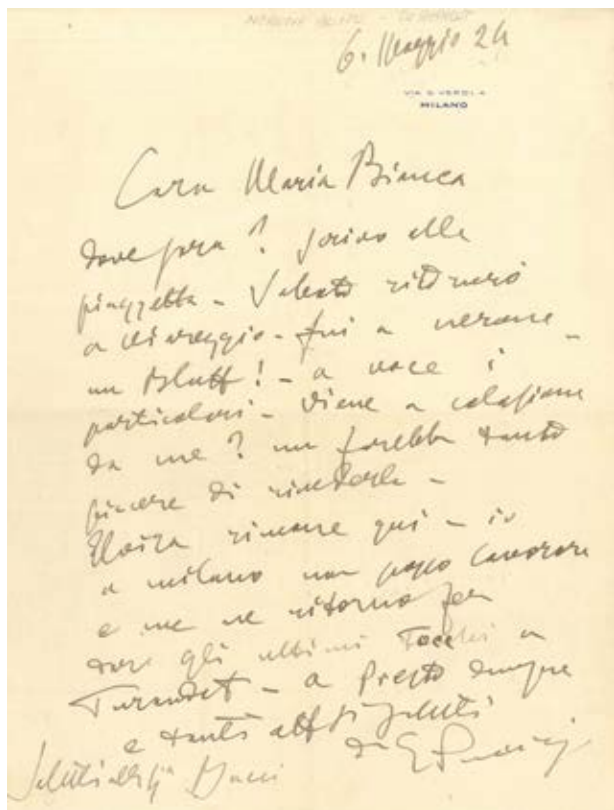 6. Maggio 24
VIA G. VERDI 4
MILANO
Cara Maria Bianca
dove sarà? scrivo alla
piazzetta - Sabato ritornerò
a Viareggio - fui a nerone -
un bluff! - a voce i
particolari - Viene a colazione
da me? mi farebbe tanto
piacere di rivederla -
Elvira rimane qui - io
a milano non posso lavorare
e me ne ritorno per
dare gli ultimi tocchi a
Turandot - a presto dunque
e tanti aff saluti
di G Puccini
Saluti alla Sig.a Bucci